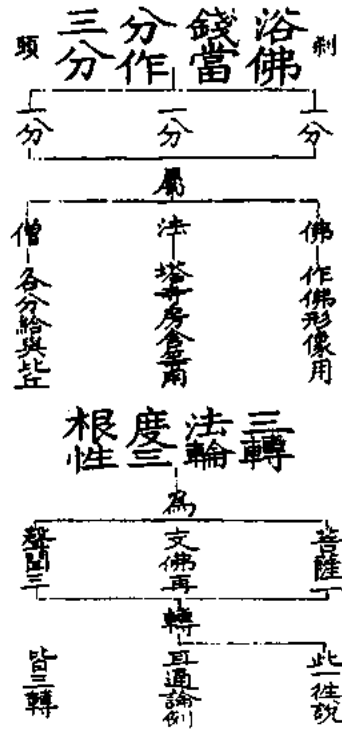 剎
浴佛
錢當
分作
三分
頭
一分
一分
一分
屬
佛 作佛形像用
法 塔寺房舍等用
僧 各分給與比丘
三轉
法輪
度三
根性
為
菩薩一
支佛再
聲聞三
轉
此一往說
通論例
皆三轉